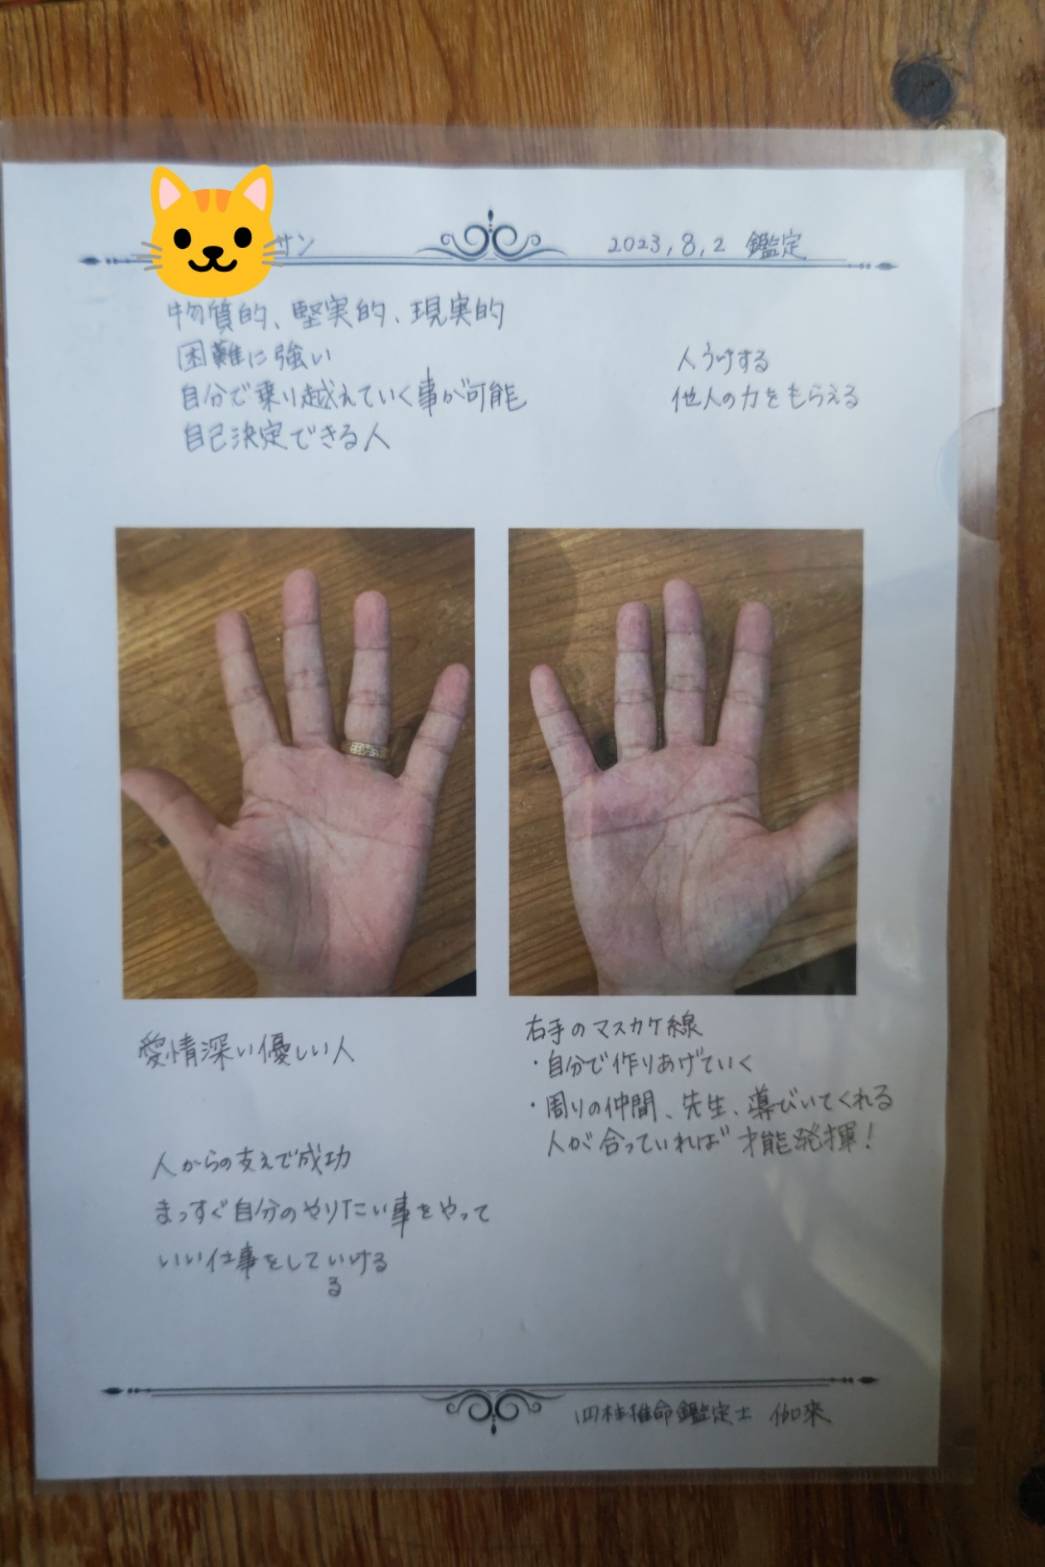 サン
2023,8,2 鑑定
物質的、堅実的、現実的
困難に強い
自分で乗り越えていく事が可能
自己決定できる人
人うけする
他人の力をもらえる
愛情深い優しい人
人からの支えで成功
まっすぐ自分のやりたい事をやって
いい仕事をしていける
る
右手のマスカケ線
・自分で作りあげていく
・周りの仲間、先生、導びいてくれる
人が合っていれば才能発揮!
四柱推命鑑定士 伽來